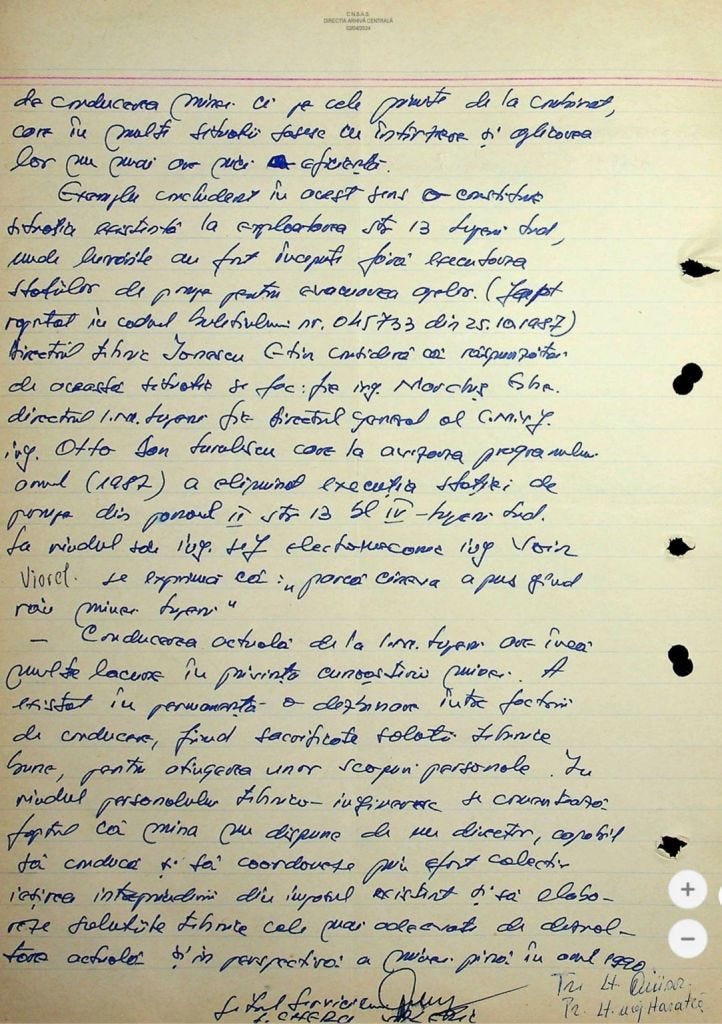 C.N.S.A.S.
DIRECȚIA ARHIVĂ CENTRALĂ
02/04/2024
de conducerea minei ci pe cele primite de la combinat,
care în multe situații sosesc cu întîrziere și aplicarea
lor nu mai are nici o eficiență.
Exemplu concludent în acest sens o constituie
situația existentă la exploatarea str 13 Lupeni Sud,
unde lucrările au fost începute fără executarea
stațiilor de pompe pentru evacuarea apelor. (Fapt
raportat în cadrul buletinului nr. 045733 din 25.10.1987)
Directorul tehnic Ionescu C-tin consideră că răspunzători
de această situație se fac: fie ing. Marchiș
directorul I.M. Lupeni fie directorul general al
ing. Otto Ion care la avizarea programului
anul (1987) a eliminat execuția stației de
pompe din panoul II str 13 bl IV - Lupeni Sud.
La rîndul său ing. șef electromecanic ing Voin
Viorel se exprimă că: „parcă cineva a pus gînd
rău minei Lupeni"
- Conducerea actuală de la I.M. Lupeni are încă
multe lacune în privința cunoașterii minei. A
existat în permanență o dezbinare între factorii
de conducere, fiind sacrificate soluții tehnice
bune, pentru atingerea unor scopuri personale. În
rîndul personalului tehnico-ingineresc se comentează
faptul că mina nu dispune de un director, capabil
să conducă și să coordoneze prin efort colectiv
ieșirea întreprinderii din impasul existent și să elabo-
reze soluțiile tehnice cele mai adecvate de dezvol-
tare actuală și în perspectivă a minei pînă în anul 1990
Șeful Serviciului
Lt.
Lt. maj